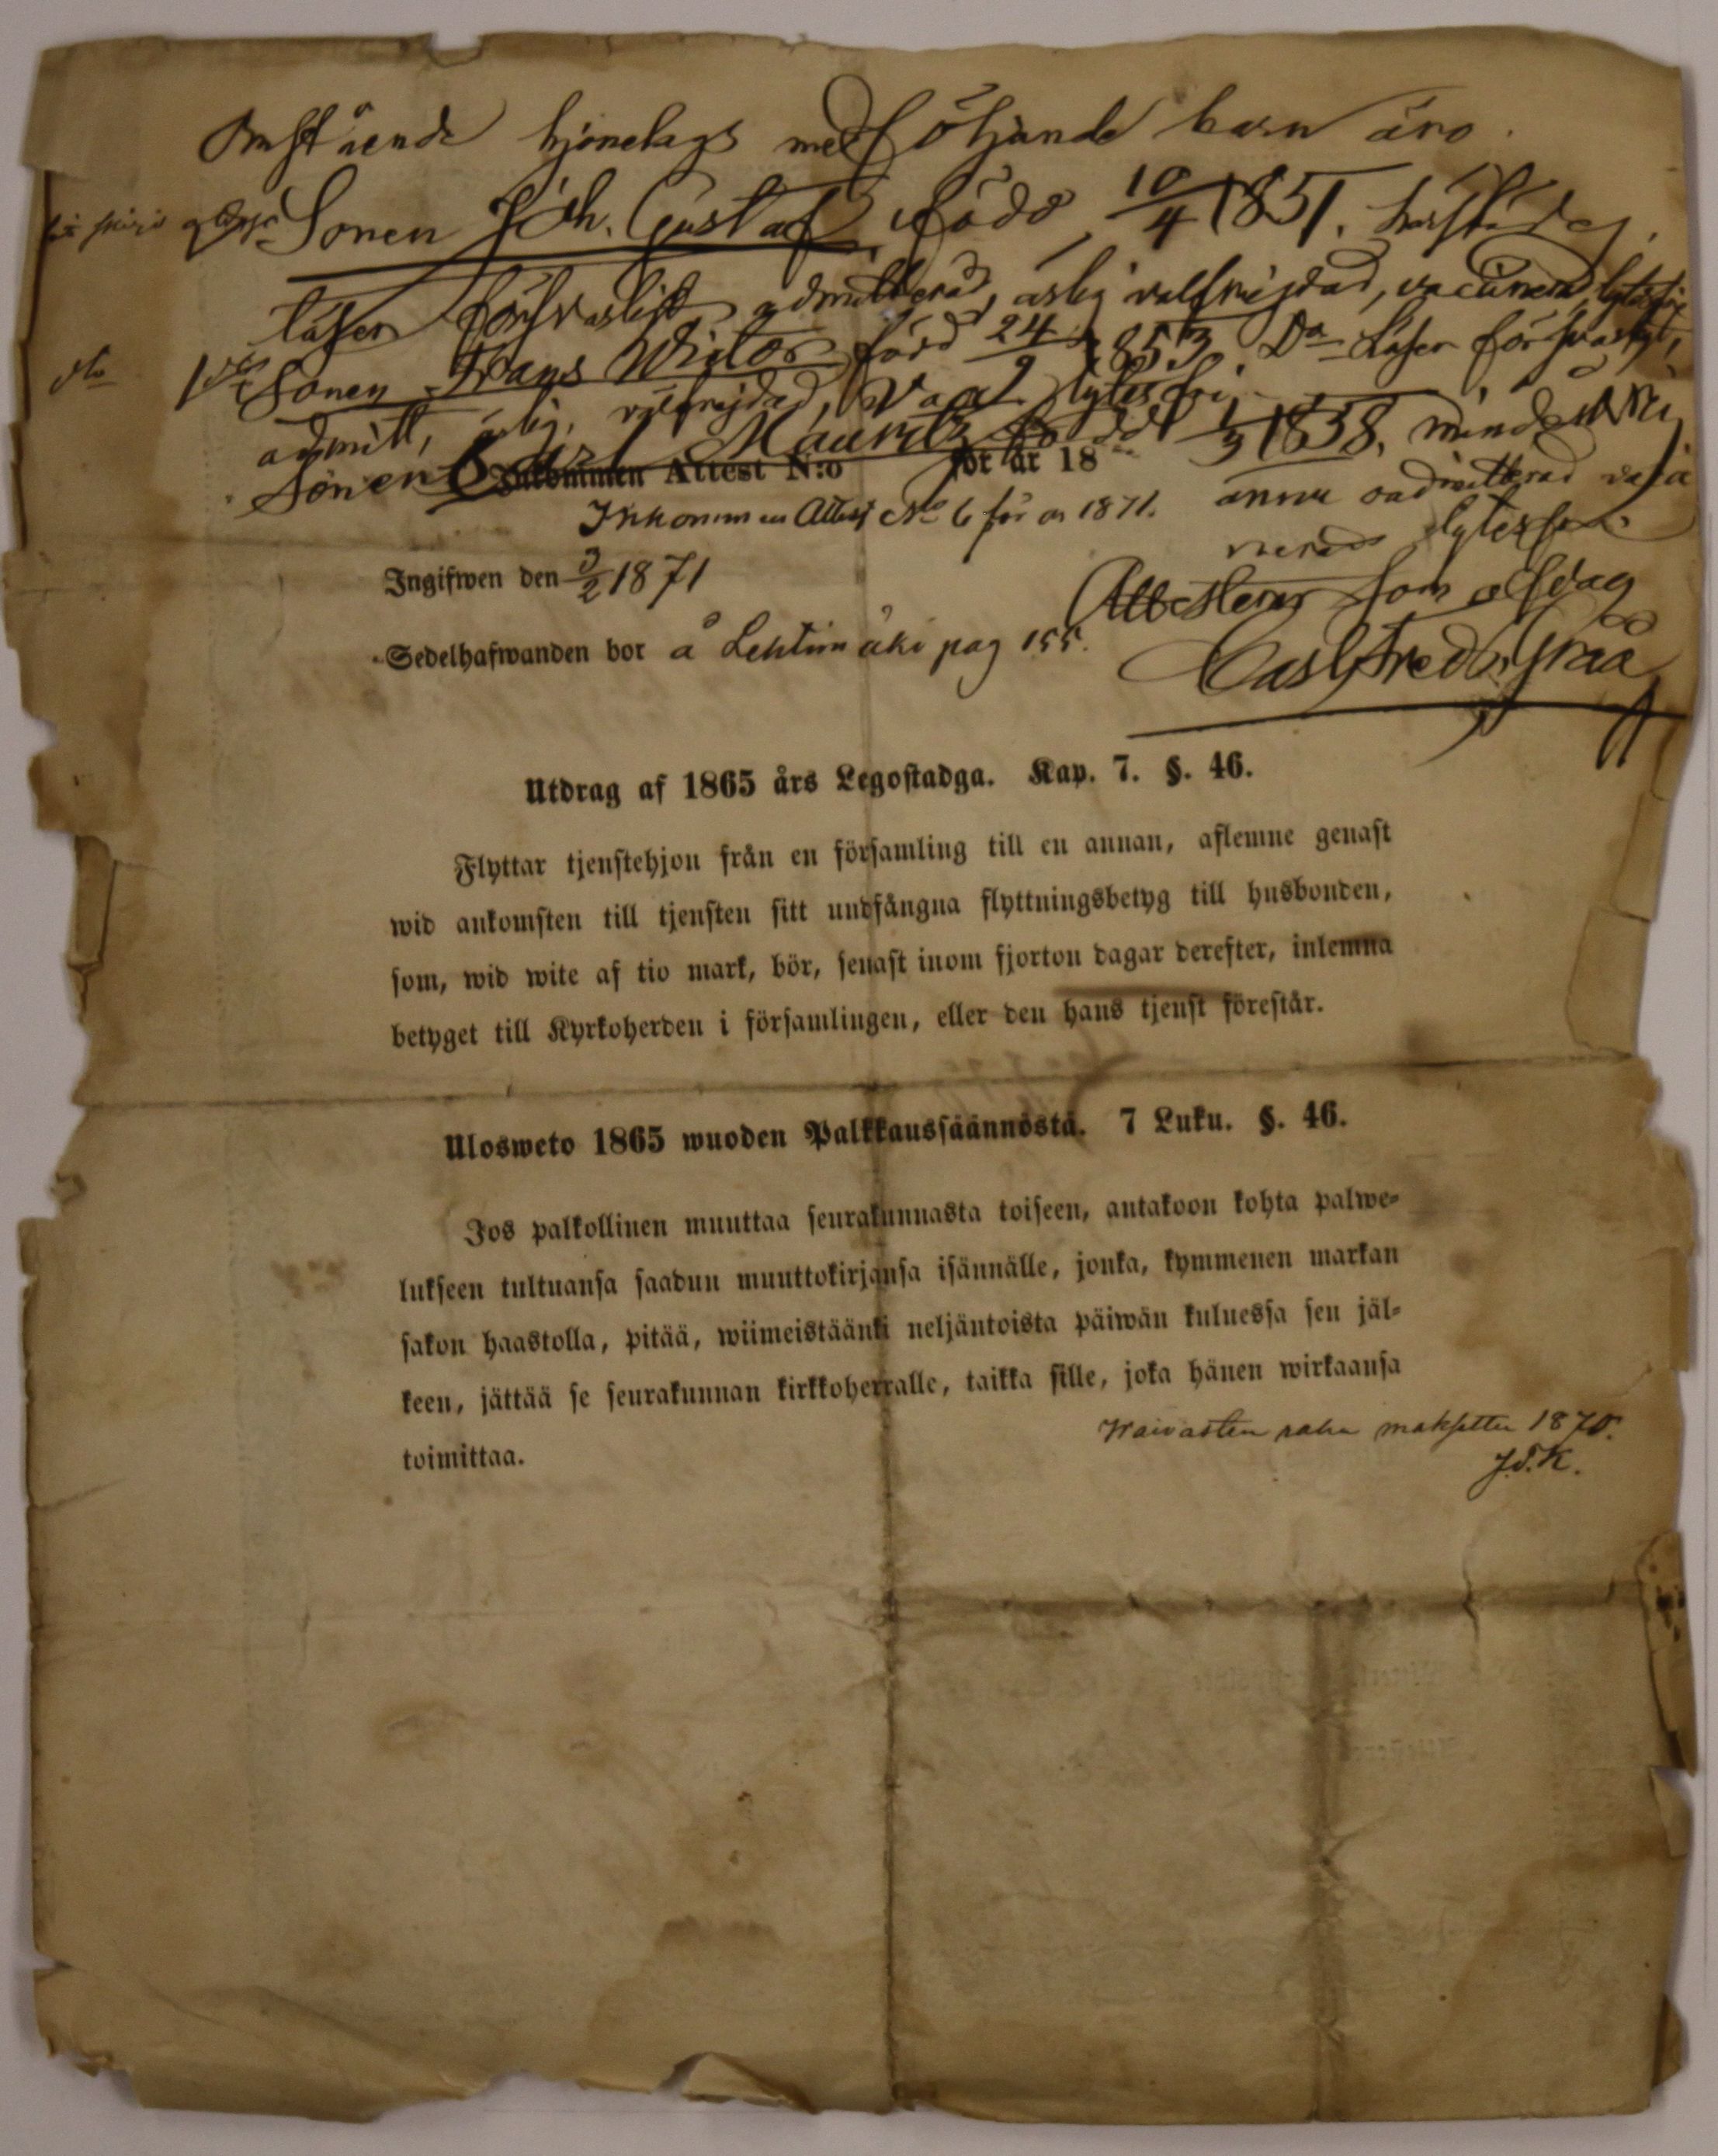 Omstående hjonelags medföljande barn äro.
Sonen Joh. Gustaf född 10/4 1851. härstädes,
läser försvarligt admitterad, ärlig välfrejdad, vaccinerad, lytesfri
Sonen Frans Wictor född 24/9 1853. Do Läser försvarligt,
admitt, ärlig, välfrejdad, Vacc. lytesfri
Sonen Carl Mauritz född 1/9 1858.
Inkommen Attest N:o för år 18
ännu oadmitterad vacci
nerad lytesfri.
Inkommen Attest No 6 för år 1871.
Ingifwen den 3/2 1871
Attesteras som ofvan
Sedelhafwanden bor å Lehtimäki pag 155.
Carl Fredr.
Utdrag af 1865 års Legostadga. Kap. 7. §. 46.
Flyttar tjenstehjon från en församling till en annan, aflemne genast
wid ankomsten till tjensten sitt undfångna flyttningsbetyg till husbonden,
som, wid wite af tio mark, bör, senast inom fjorton dagar derefter, inlemna
betyget till Kyrkoherden i församlingen, eller den hans tjenst förestår.
Ulosweto 1865 wuoden Palkkaussäännöstä. 7 Luku. §. 46.
Jos palkollinen muuttaa seurakunnasta toiseen, antakoon kohta palwe-
lukseen tultuansa saadun muuttokirjansa isännälle, jonka, kymmenen markan
sakon haastolla, pitää, wiimeistäänki neljäntoista päiwän kuluessa sen jäl-
keen, jättää se seurakunnan kirkkoherralle, taikka sille, joka hänen wirkaansa
toimittaa.
Waivasten raha maksettu 1870.
J.T.K.